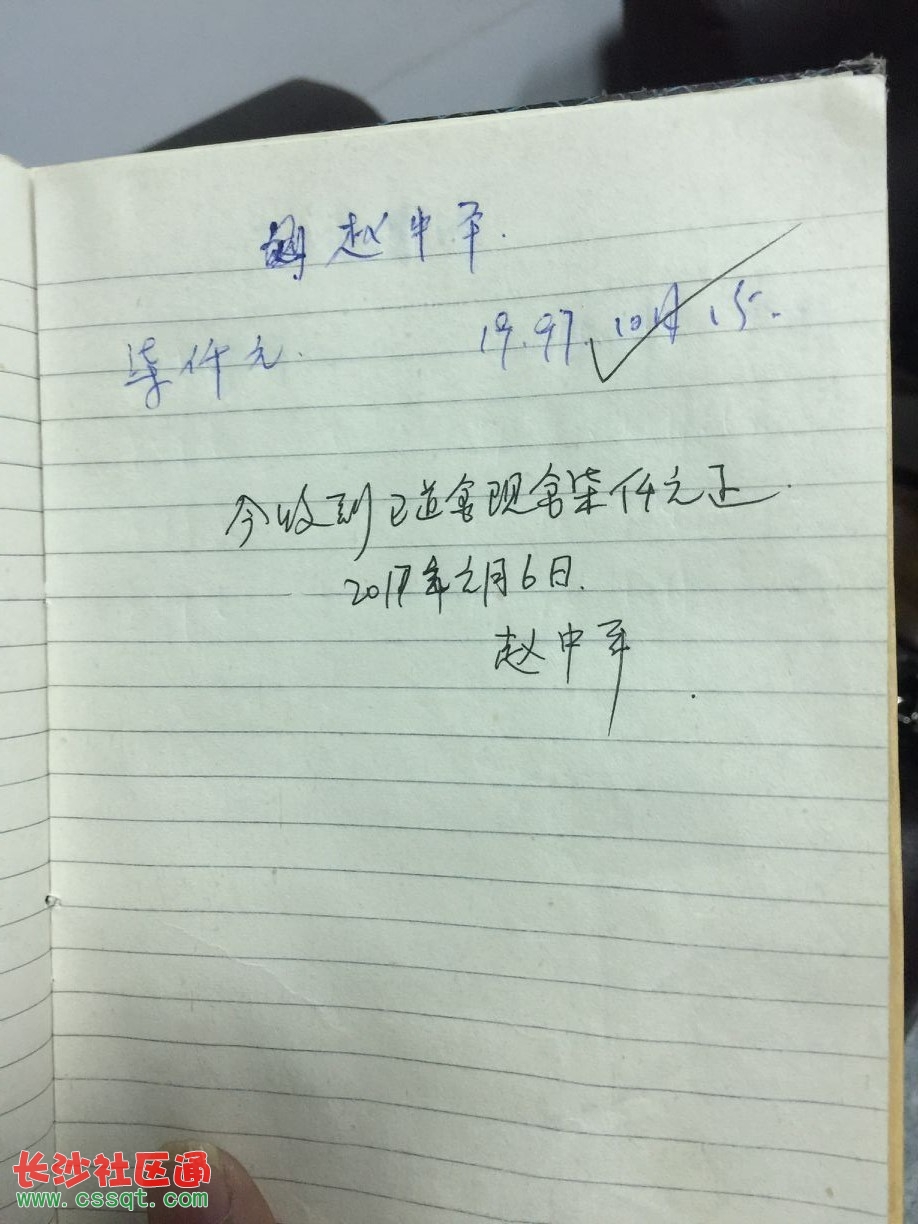 赵中平.
柒仟元. 19.97.10月15.
今收到 道 现 柒仟元正.
2017年元月6日.
赵中平
长沙社区通
www.cssqt.com